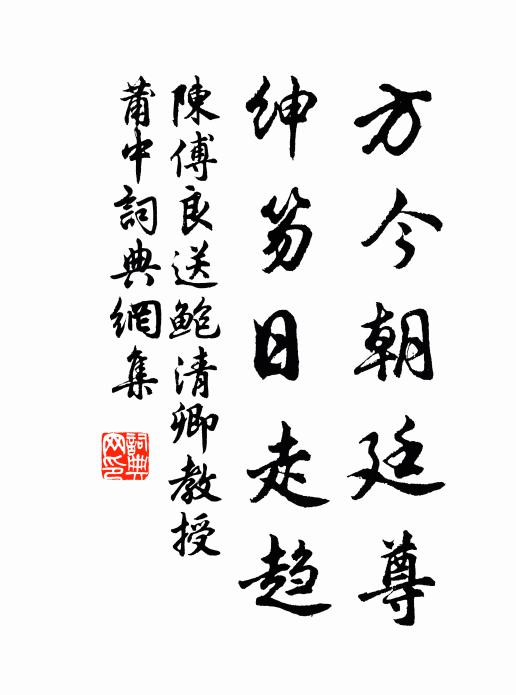 方今朝廷尊
紳笏日走趋
陳傅良送鲍清卿教授
莆中詞典網集
詞典网印